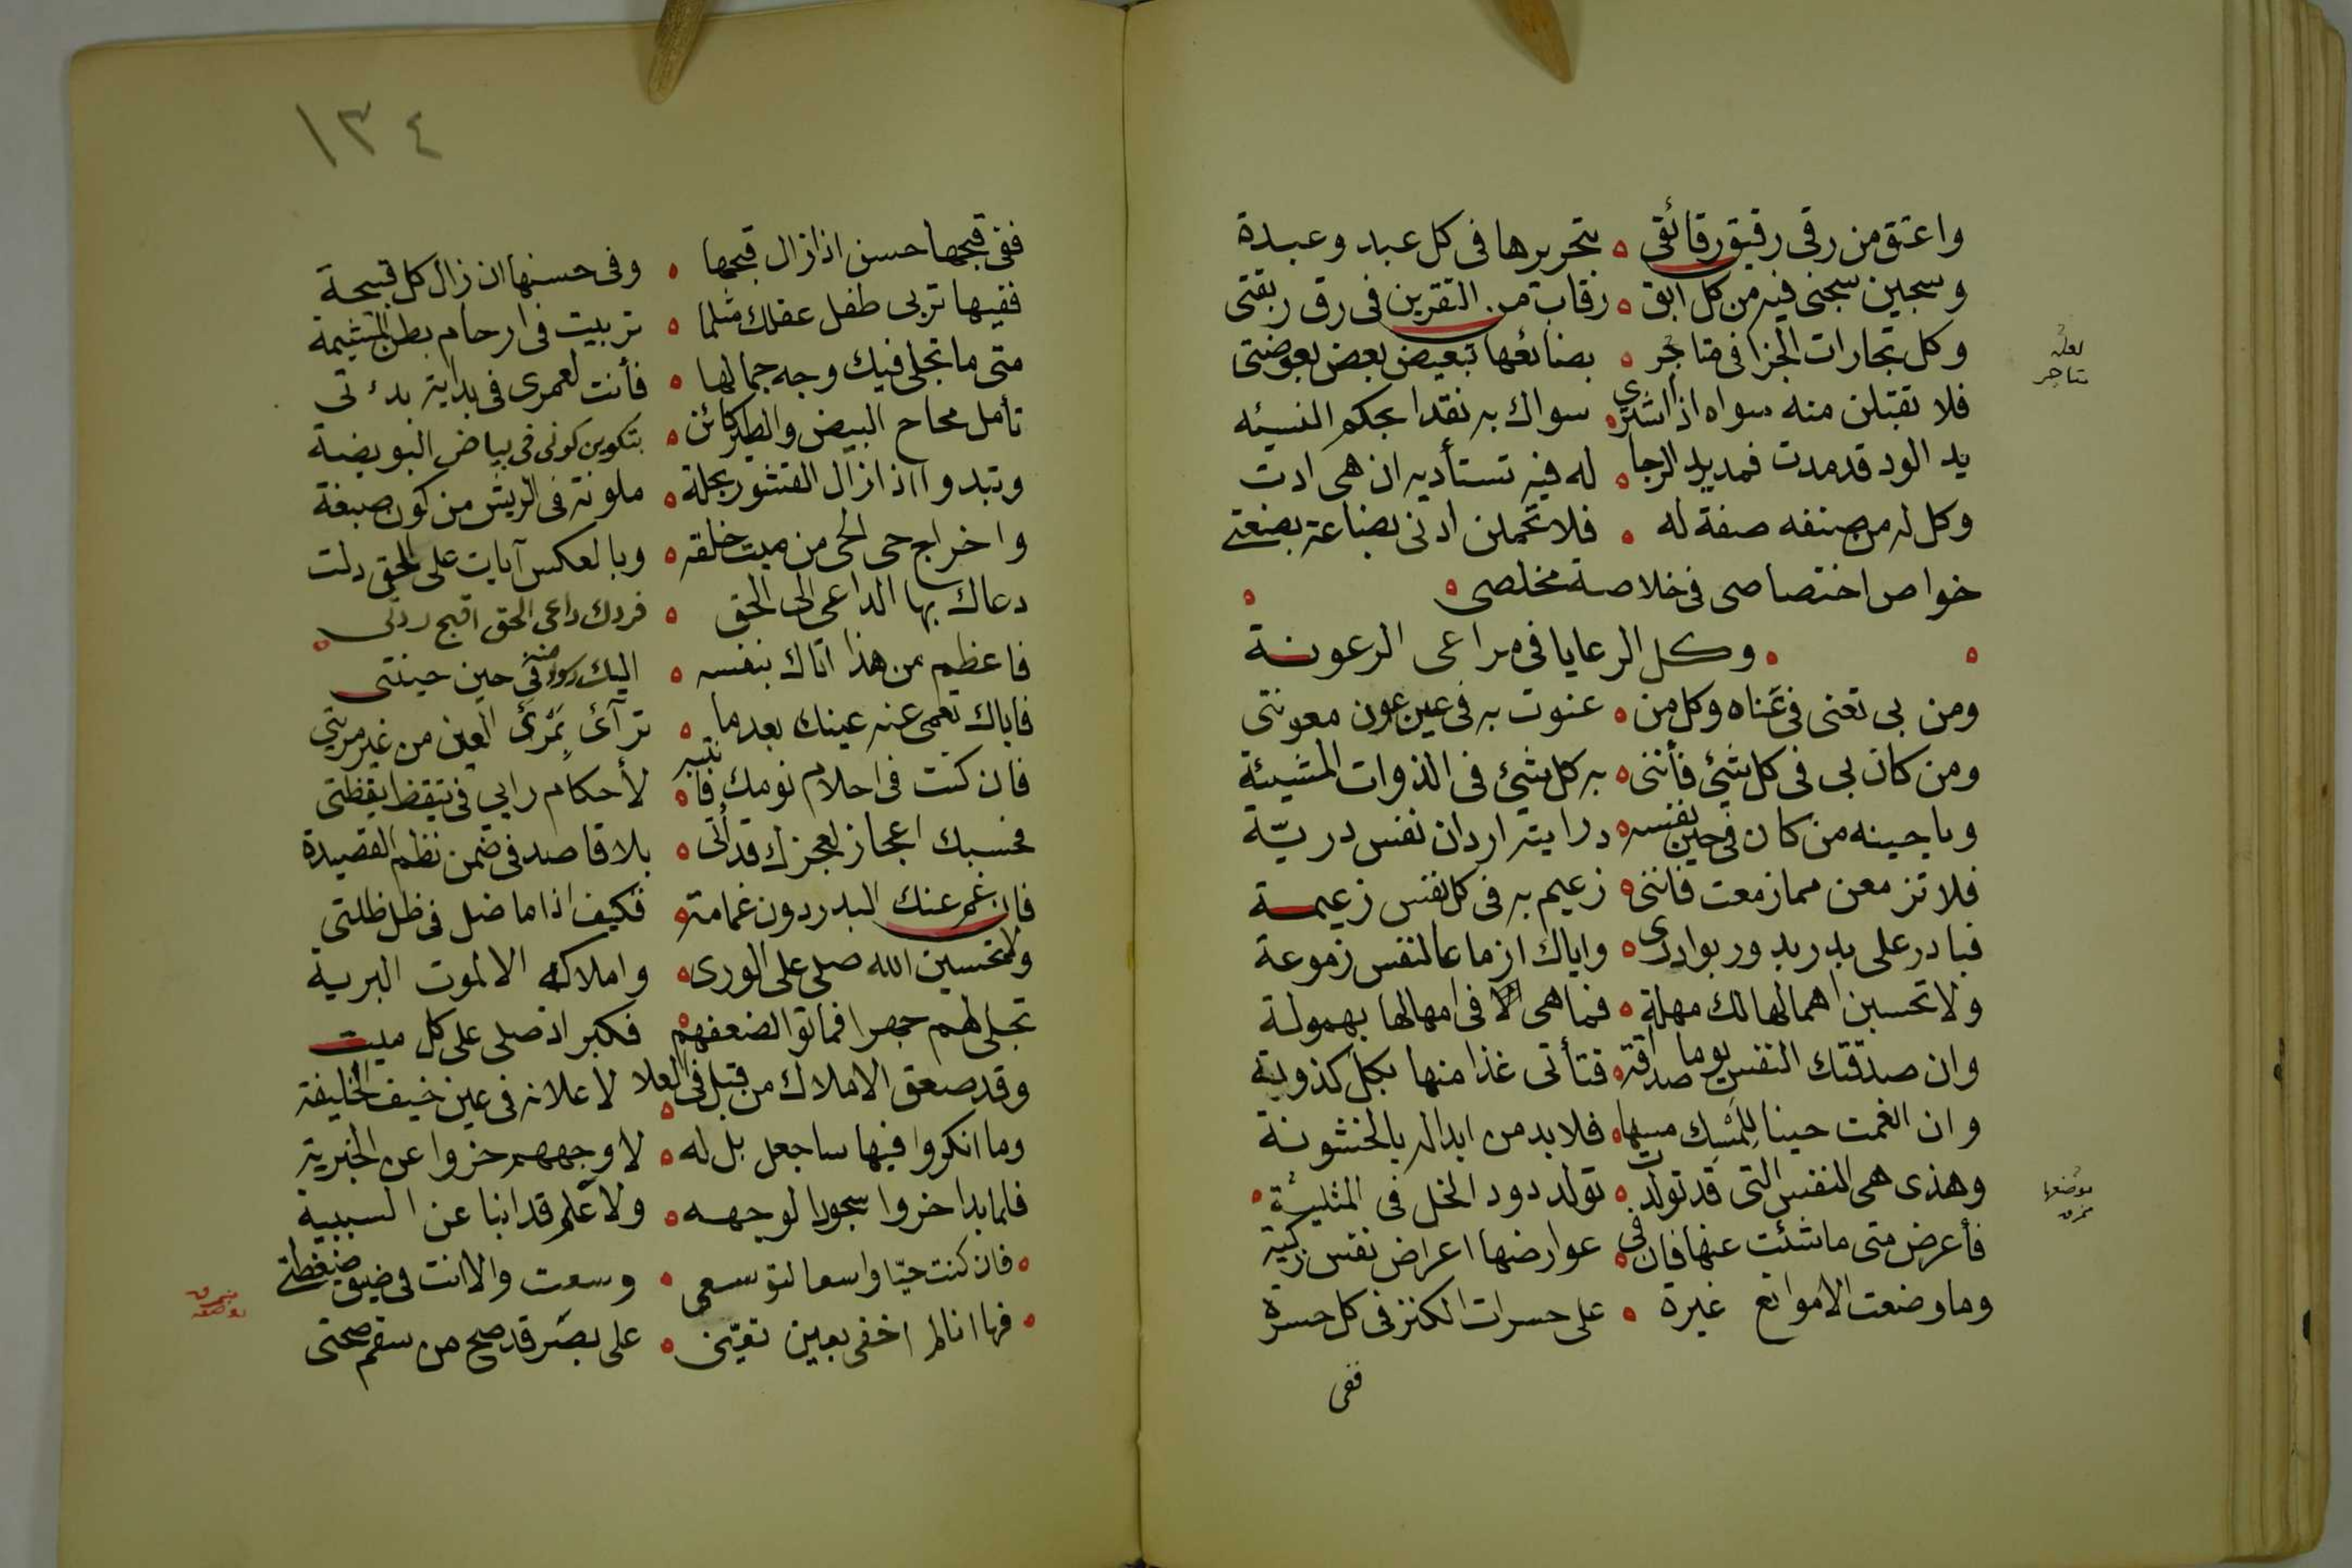 واعتق من رقى رقيق رقائقى ه بتحريرها فى كل عبد وعبدة
وسجين سجنى فيه من كل ابق ه رقاب من التقرين فى رق ربقتى
وكل تجارات الجزا فى متاجر ه بضائعها تبعيض بعض بعوضتى
لعله
متاجر
فلا تقبلن منه سواه اذا اشترى ه سواك به نقدا بحكم النسيئه
يد الود قد مدت فمد يد الرجا ه له فيه تستأديه ان هى ادت
وكل له من صنفه صفة له ه فلا تحملن ادنى بضاعة بضعتى
خواص اختصاصى فى خلاصة مخلصى ه
ه وكل الرعايا فى مراعى الرعونة
ومن بى تعنى فى عناه وكل من ه عنوت به فى عين عون معونتى
ومن كان بى فى كل شئ فأننى ه به كل شئ فى الذوات المشيئة
ويا حينه من كان فى حين نفسه ه درايته اردان نفس دريّة
فلا تزمعن مما زمعت فاننى ه زعيم به فى كل نفس زعيمة
فبادر على بدر بدور بوادرى ه واياك ازماعا لنفس زموعة
ولا تحسبن اهمالها لك مهلة ه فما هى الا فى امهالها بهمولة
وان صدقتك النفس يوما صداقة ه فتأتى غدا منها بكل كذوبة
وان انعمت حينا بلمسك مسها ه فلا بد من ابداله بالخشونة
وهذى هى النفس التى قد تولدت ه تولد دود الخل فى المثلية ه
فأعرض متى ما شئت عنها فان فى ه عوارضها اعراض نفس زكية
وما وضعت الا موانع غيرة ه على حسرات الكنز فى كل حسرة
ففى
١٣٤
ففى قبحها حسن اذا زال قبحها ه وفى حسنها ان زال كل قبيحة
ففيها تربى طفل عقلك مثلما ه تربيت فى ارحام بطن المشيمة
متى ما تجلى فيك وجه جمالها ه فأنت لعمرى فى بداية بدءتى
تأمل محاح البيض والطير كائن ه بتكوين كونى فى بياض البويضة
وتبدو اذا زال القشور بحلة ه ملونة فى الريش من كون صبغة
واخراج حى الحى من ميت خلقه ه وبالعكس آيات على الحق دلت
دعاك بها الداعى الى الحق ه فردك داعى الحق اقبح ردتى ه
فاعظم من هذا اتاك بنفسه ه اليك رسول منه فى حين حينتى
فاياك تعمى عنه عينك بعدما ه ترآئ بمرئ العين من غير مريتى
فان كنت فى احلام نومك فانتبه ه لأحكام رابي فى تيقظ يقظتى
فحسبك اعجاز لعجزك قد أتى ه بلا قاصد فى ضمن نظم القصيدة
فان غم عنك البدر دون غمامة ه فكيف اذا ما ضل فى ظل ظلتى
ولا تحسبن الله صلى على الورى ه واملاكه الا لموت البرية
تجلى لهم جهرا فماتوا لضعفهم ه فكبر اذ صلى على كل ميت
وقد صعق الاملاك من قبل فى العلا ه لأعلانه فى عين خيف الخليفة
وما انكروا فيها سا جعل بل له ه لاوجههم خروا عن الخبرية
فلما بدا خروا سجودا لوجهه ه ولا علم قد ابنا عن السببية
ه فان كنت حيّا واسعا لتوسعى ه وسعت والا انت فى ضيق ضغطتى
ه فها انا لم اخفى بعين تعيّنى ه على بصر قد صح من سقم صحتى